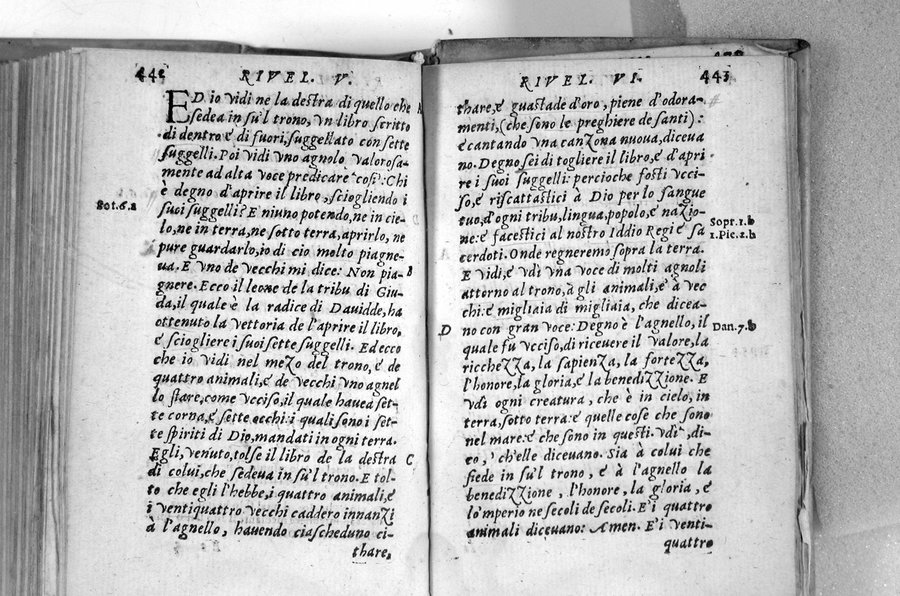 442 RIVEL. V.
ED io vidi ne la destra di quello che
sedea in su'l trono, vn libro scritto
di dentro e di fuori, suggellato con sette
suggelli. Poi vidi vno agnolo valorosa-
mente ad alta voce predicare cosi: Chi
è degno d'aprire il libro, sciogliendo i
suoi suggelli? E niuno potendo, ne in cie-
lo, ne in terra, ne sotto terra, aprirlo, ne
pure guardarlo, io di cio molto piagne-
ua. E vno de vecchi mi dice: Non pia-
gnere. Ecco il leone de la tribu di Giu-
da, il quale è la radice di Dauidde, ha
ottenuto la vettoria de l'aprire il libro,
e sciogliere i suoi sette suggelli. Ed ecco
che io vidi nel mezo del trono, e de
quattro animali, e de vecchi vno agnel
lo stare, come vcciso, il quale hauea set-
te corna, e sette occhi: i quali sono i set-
te spiriti di Dio, mandati in ogni terra.
Egli, venuto, tolse il libro de la destra
di colui, che sedeua in su'l trono. E tol-
to che egli l'hebbe, i quattro animali, e
i ventiquattro vecchi caddero innanzi
à l'agnello, hauendo ciascheduno ci-
thare,
Sot.6.a
B
C
RIVEL. VI. 443
thare, e guastade d'oro, piene d'odora-
menti, (che sono le preghiere de santi):
e cantando vna canzona nuoua, diceua
no. Degno sei di togliere il libro, e d'apri
re i suoi suggelli: percioche fosti vcci-
so, e riscattastici à Dio per lo sangue
tuo, d'ogni tribu, lingua, popolo, e nazio-
ne: e facestici al nostro Iddio Regi e sa
cerdoti. Onde regneremo sopra la terra.
E vidi, e vdi vna voce di molti agnoli
attorno al trono, à gli animali, e à vec
chi: e migliaia di migliaia, che dicea-
no con gran voce: Degno è l'agnello, il
quale fu vcciso, di riceuere il valore, la
ricchezza, la sapienza, la fortezza,
l'honore, la gloria, e la benedizzione. E
vdi ogni creatura, che è in cielo, in
terra, sotto terra: e quelle cose che sono
nel mare: e che sono in questi. vdi, di-
co, ch'elle diceuano. Sia à colui che
siede in su'l trono, e à l'agnello la
benedizzione, l'honore, la gloria, e
lo'mperio ne secoli de secoli. E i quattro
animali diceuano: Amen. E i venti-
quattro
Sopr.1.b
1.Pie.2.b
D
Dan.7.b